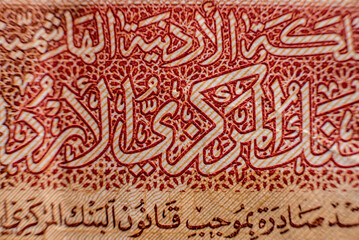 لكة الأردنية الهاشميـ
ـنك المركزي الأرد
صادرة بموجب قانون البنك المركزي ا